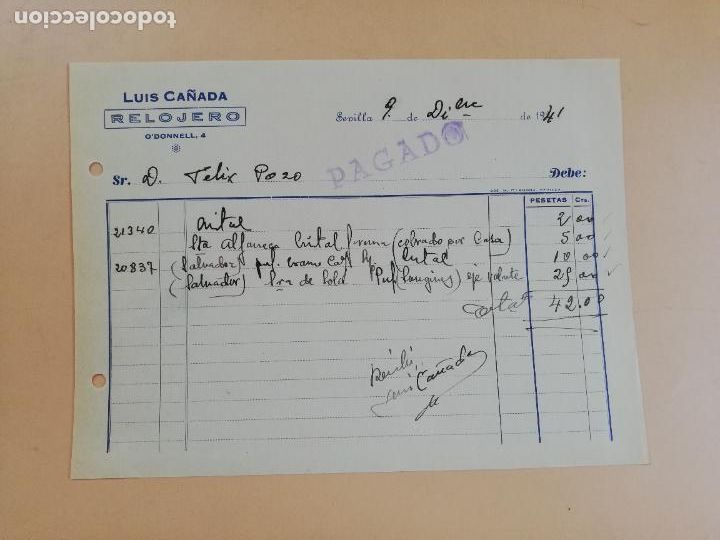 todocoleccion
LUIS CAÑADA
RELOJERO
O'DONNELL, 4
Sevilla 9 de Dibre de 1941
PAGADO
Sr. D. Felix Pozo Debe:
PESETAS Cts.
21340 Cristal 2 00
Sta Alfareca Cristal forma (cobrado por Casa) 5 00
20837 (Salvador) pul. cromo Cristal 10 00
(Salvador) de Sola Pul (Longines) eje volante 25 00
Total 42.00
Recibí
Luis Cañada